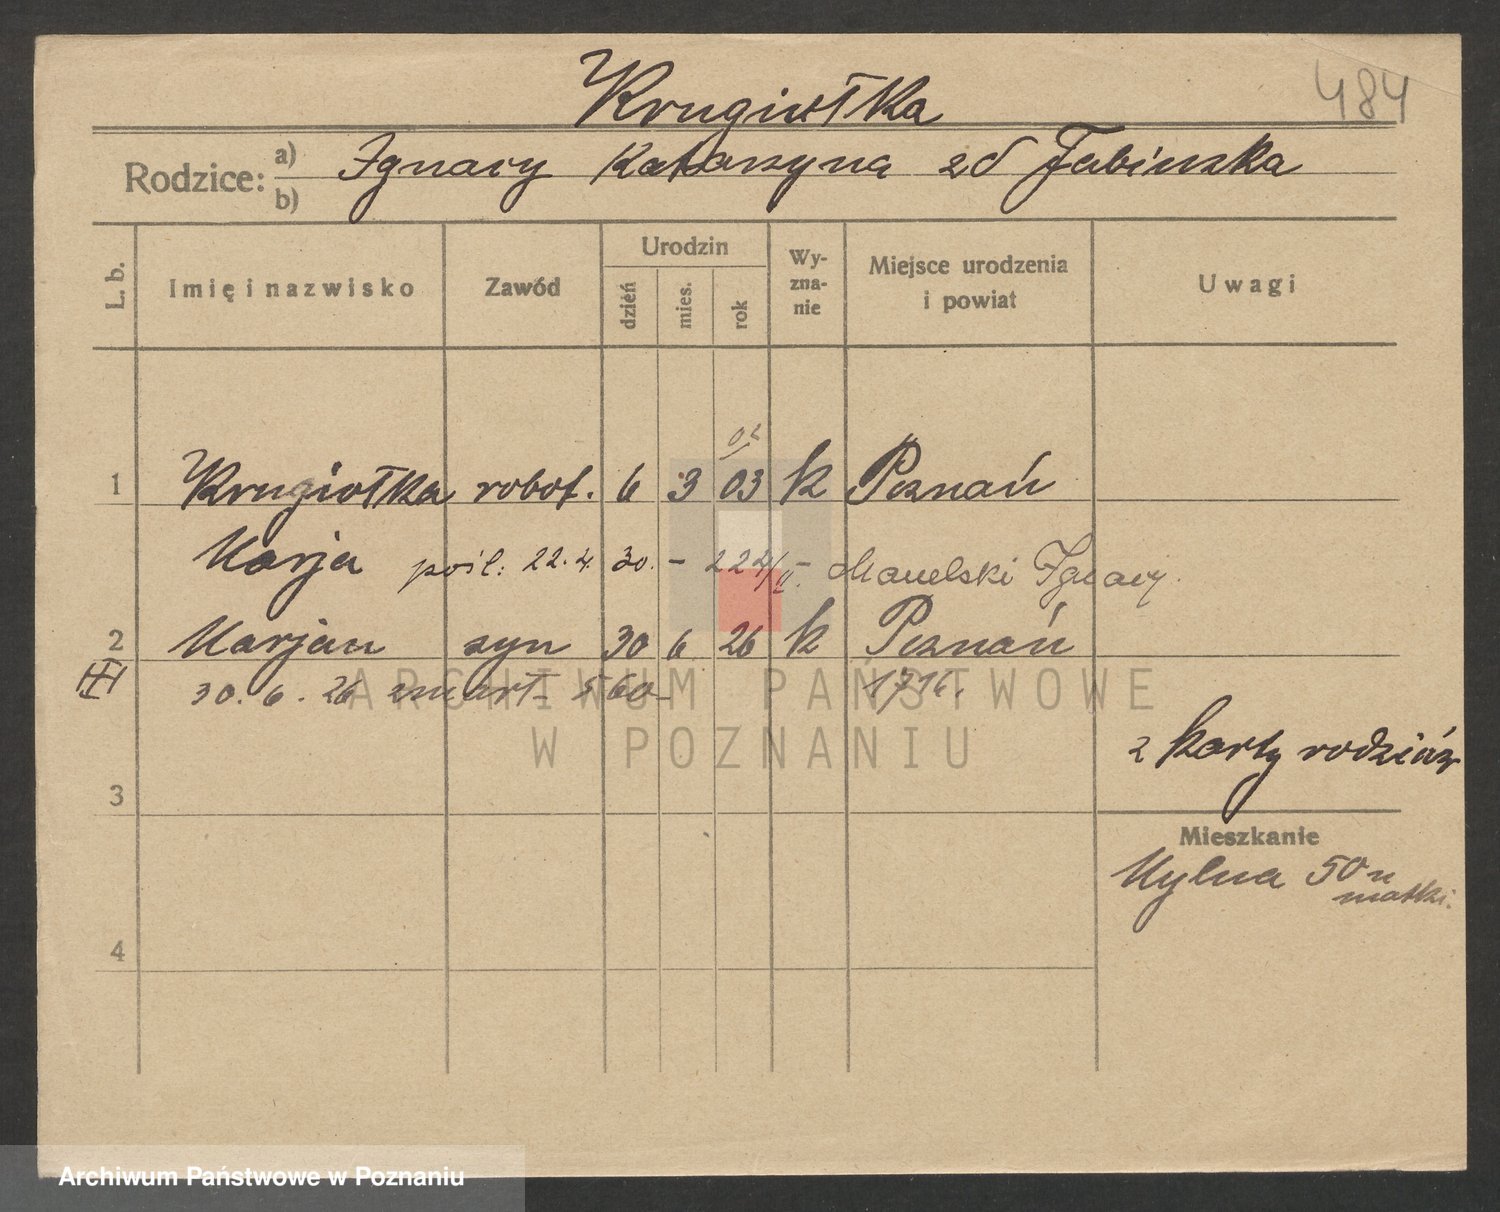 Krugiołka
484
Rodzice: a) b) Ignacy Katarzyna zd Fabiuska
L. b. Imię i nazwisko Zawód Urodzin dzień mies. rok Wyznanie Miejsce urodzenia i powiat Uwagi
02
1 Krugiołka robot. 6 3 03 k Poznań
Marja pośl: 22.4. 30. - 224/II. Manelski Ignacy.
2 Marjan syn 30 6 26 k Poznań
30. 6. 26 zmart- 560- 1716.
ARCHIWUM PAŃSTWOWE
W POZNANIU
z karty rodziców
3
Mieszkanie
Mylna 50 u
matki.
4
Archiwum Państwowe w Poznaniu